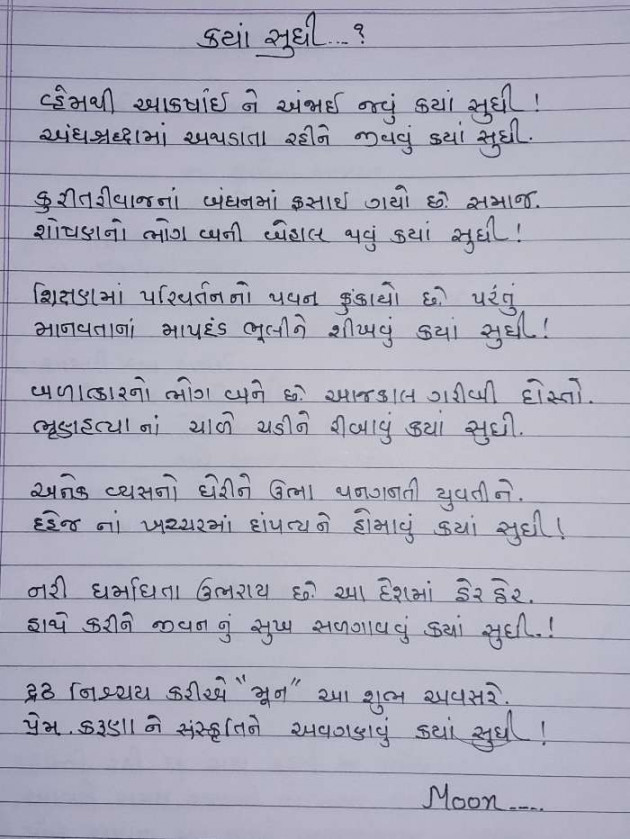 ક્યાં સુધી....?
વ્હેમથી આકર્ષાઈ ને અંજાઈ જવું ક્યાં સુધી!
અંધશ્રદ્ધામાં અથડાતા રહીને જીવવું ક્યાં સુધી.
કુરીતરીવાજનાં બંધનમાં ફસાઈ ગયો છે સમાજ.
શોષણનો ભોગ બની બેહાલ થવું ક્યાં સુધી!
શિક્ષણમાં પરિવર્તનનો પવન ફુંકાયો છે પરંતું
માનવતાનાં માપદંડ ભૂલીને શીખવું ક્યાં સુધી!
બળાત્કારનો ભોગ બને છે આજકાલ ગરીબી દોસ્તો.
ભૃણહત્યા નાં ચાળે ચડીને રીબાવું ક્યાં સુધી.
અનેક વ્યસનો ઘેરીને ઉભા થનગનતી યુવતીને.
દહેજ નાં ખપ્પરમાં દાંપત્યને હોમાવું ક્યાં સુધી!
નરી ધર્માંધતા ઉભરાય છે આ દેશમાં ઠેર ઠેર.
હાથે કરીને જીવનનું સુખ સળગાવવું ક્યાં સુધી.!
દ્રઢ નિશ્ચય કરીએ "મૂન" આ શુભ અવસરે.
પ્રેમ.કરૂણા ને સંસ્કૃતિને અવગણવું ક્યાં સુધી!
Moon....